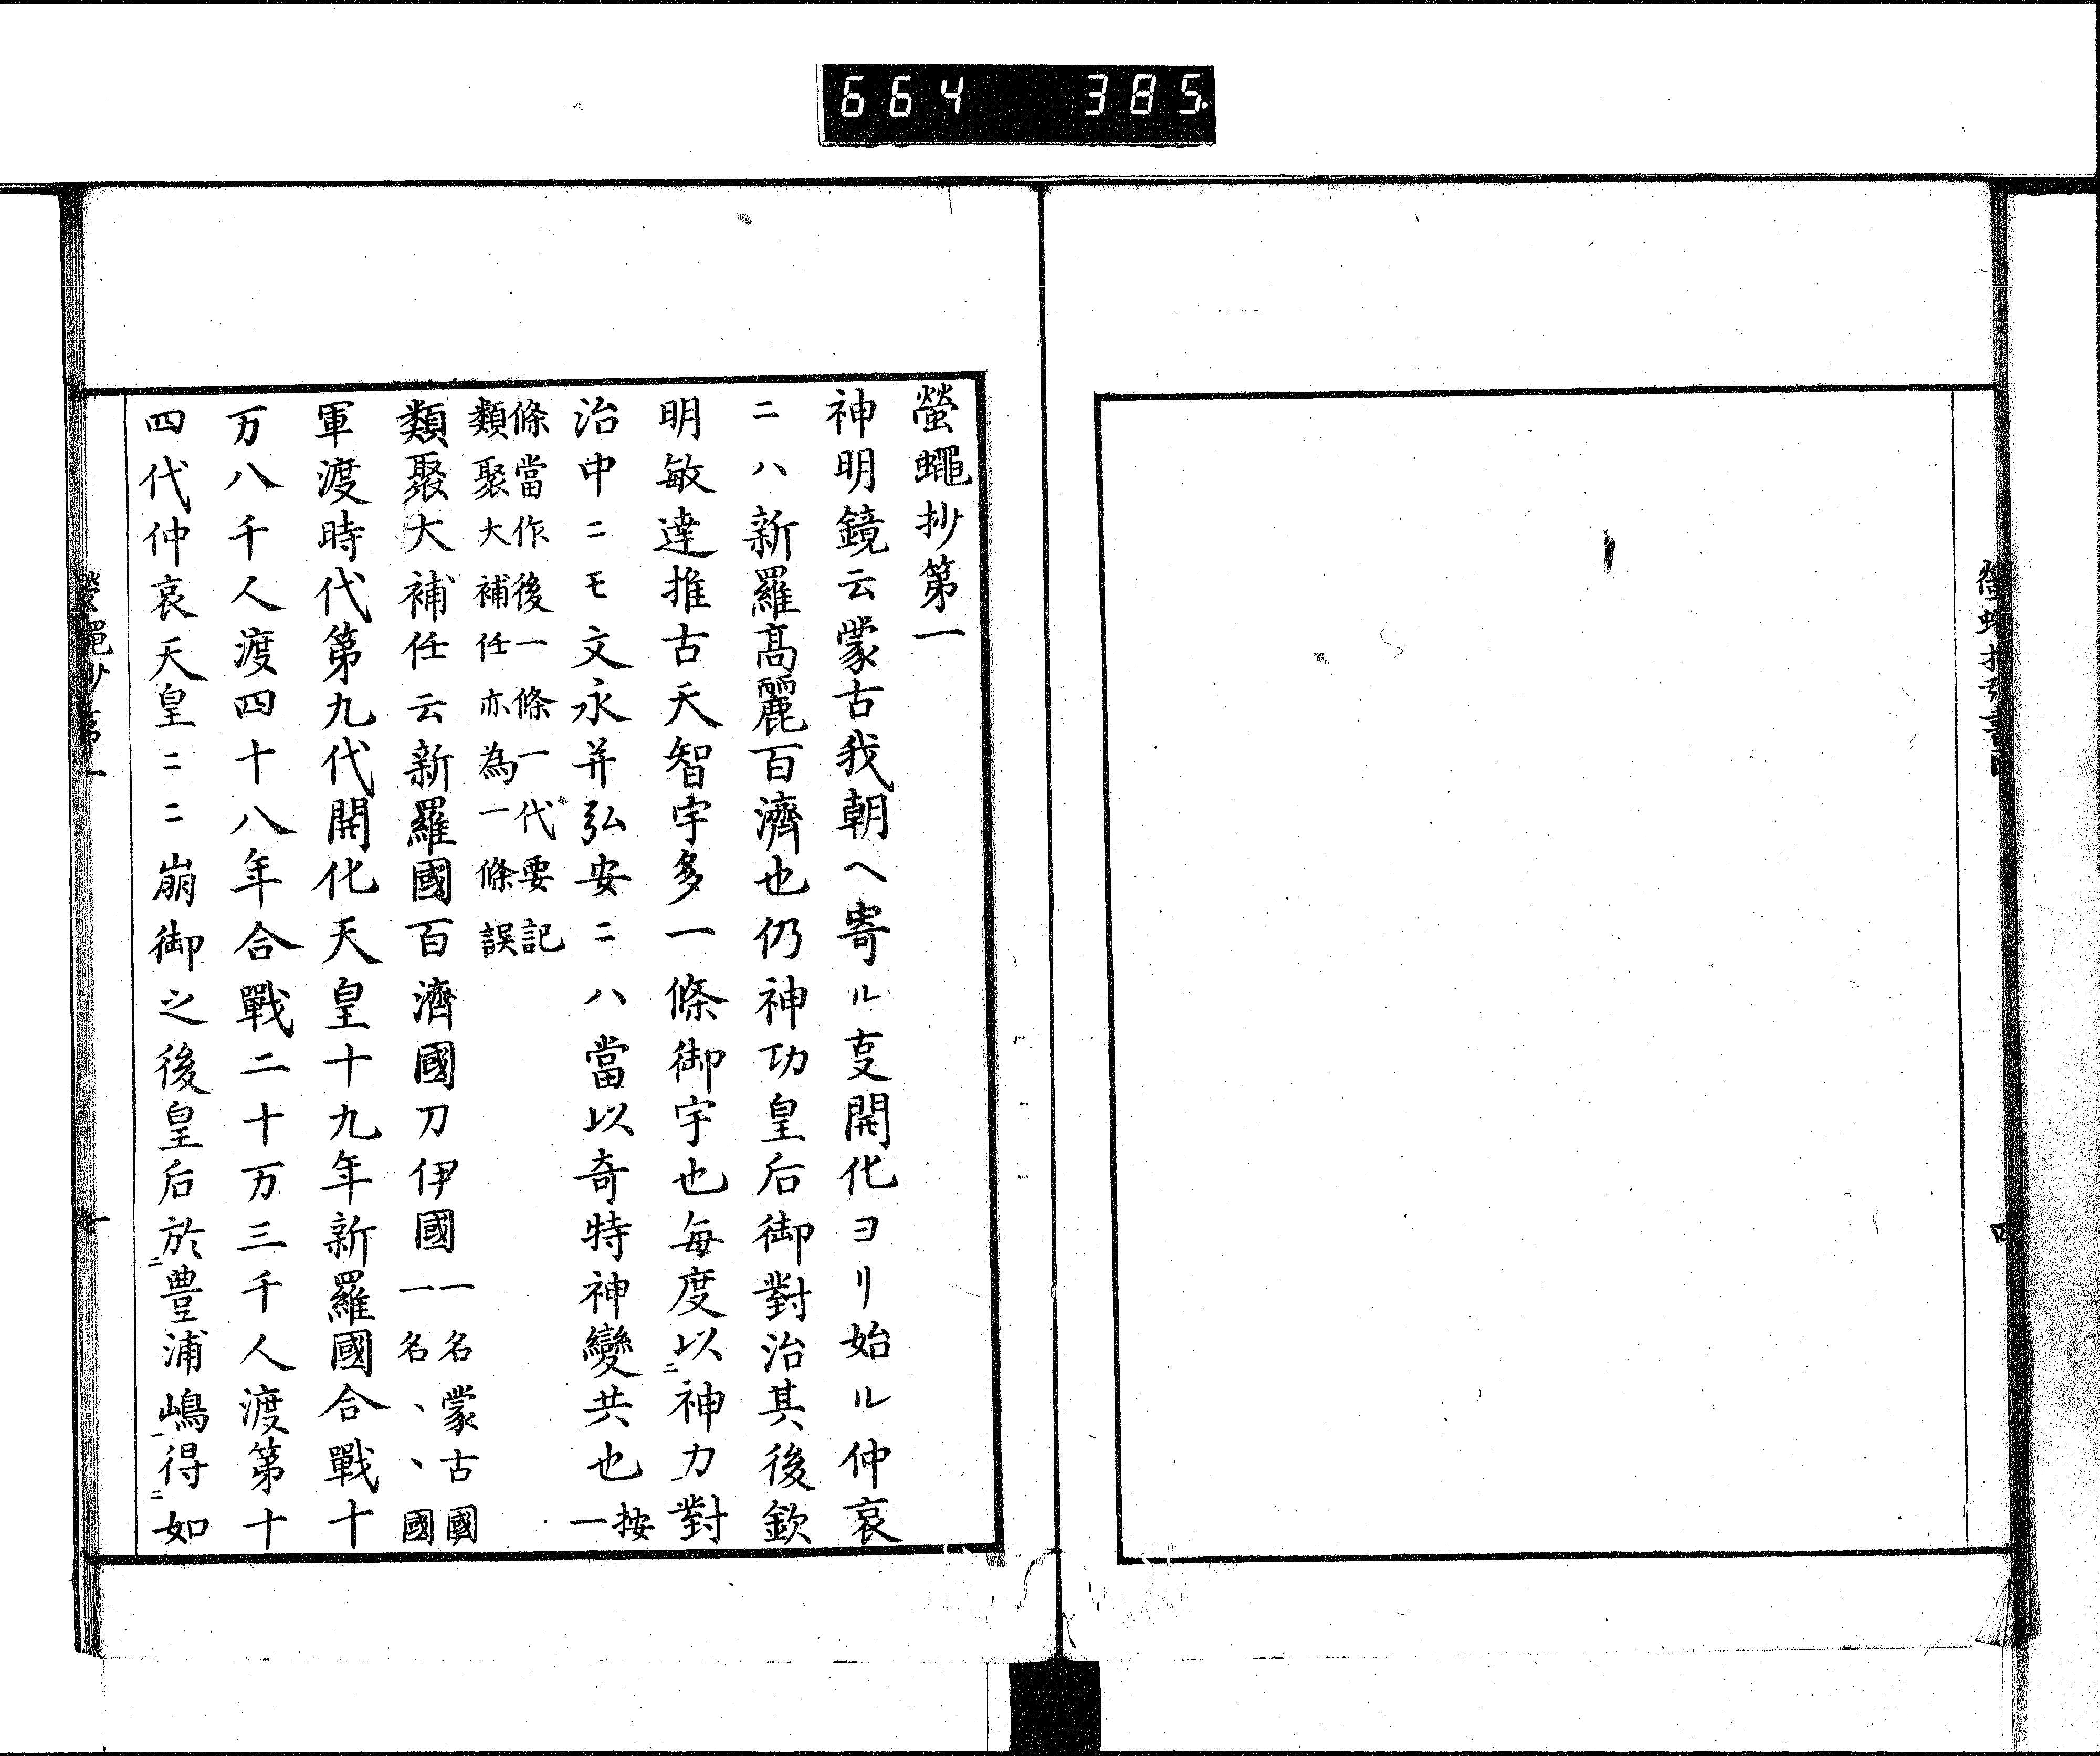 664 385.
螢蠅抄第一
神明鏡云蒙古我朝ヘ寄ル叓開化ヨリ始ル仲哀
ニハ新羅髙麗百濟也仍神功皇后御對治其後欽
明敏達推古天智宇多一條御宇也毎度以ニ神力一對
治中ニモ文永并弘安ニハ當以奇特神變共也按一
條當作後一條一代要記
類聚大補任亦為一條誤
類聚大補任云新羅國百濟國刀伊國一名蒙古國一名、、國
軍渡時代第九代開化天皇十九年新羅國合戰十
万八千人渡四十八年合戰二十万三千人渡第十
四代仲哀天皇ニニ崩御之後皇后於ニ豊浦嶋一得ニ如